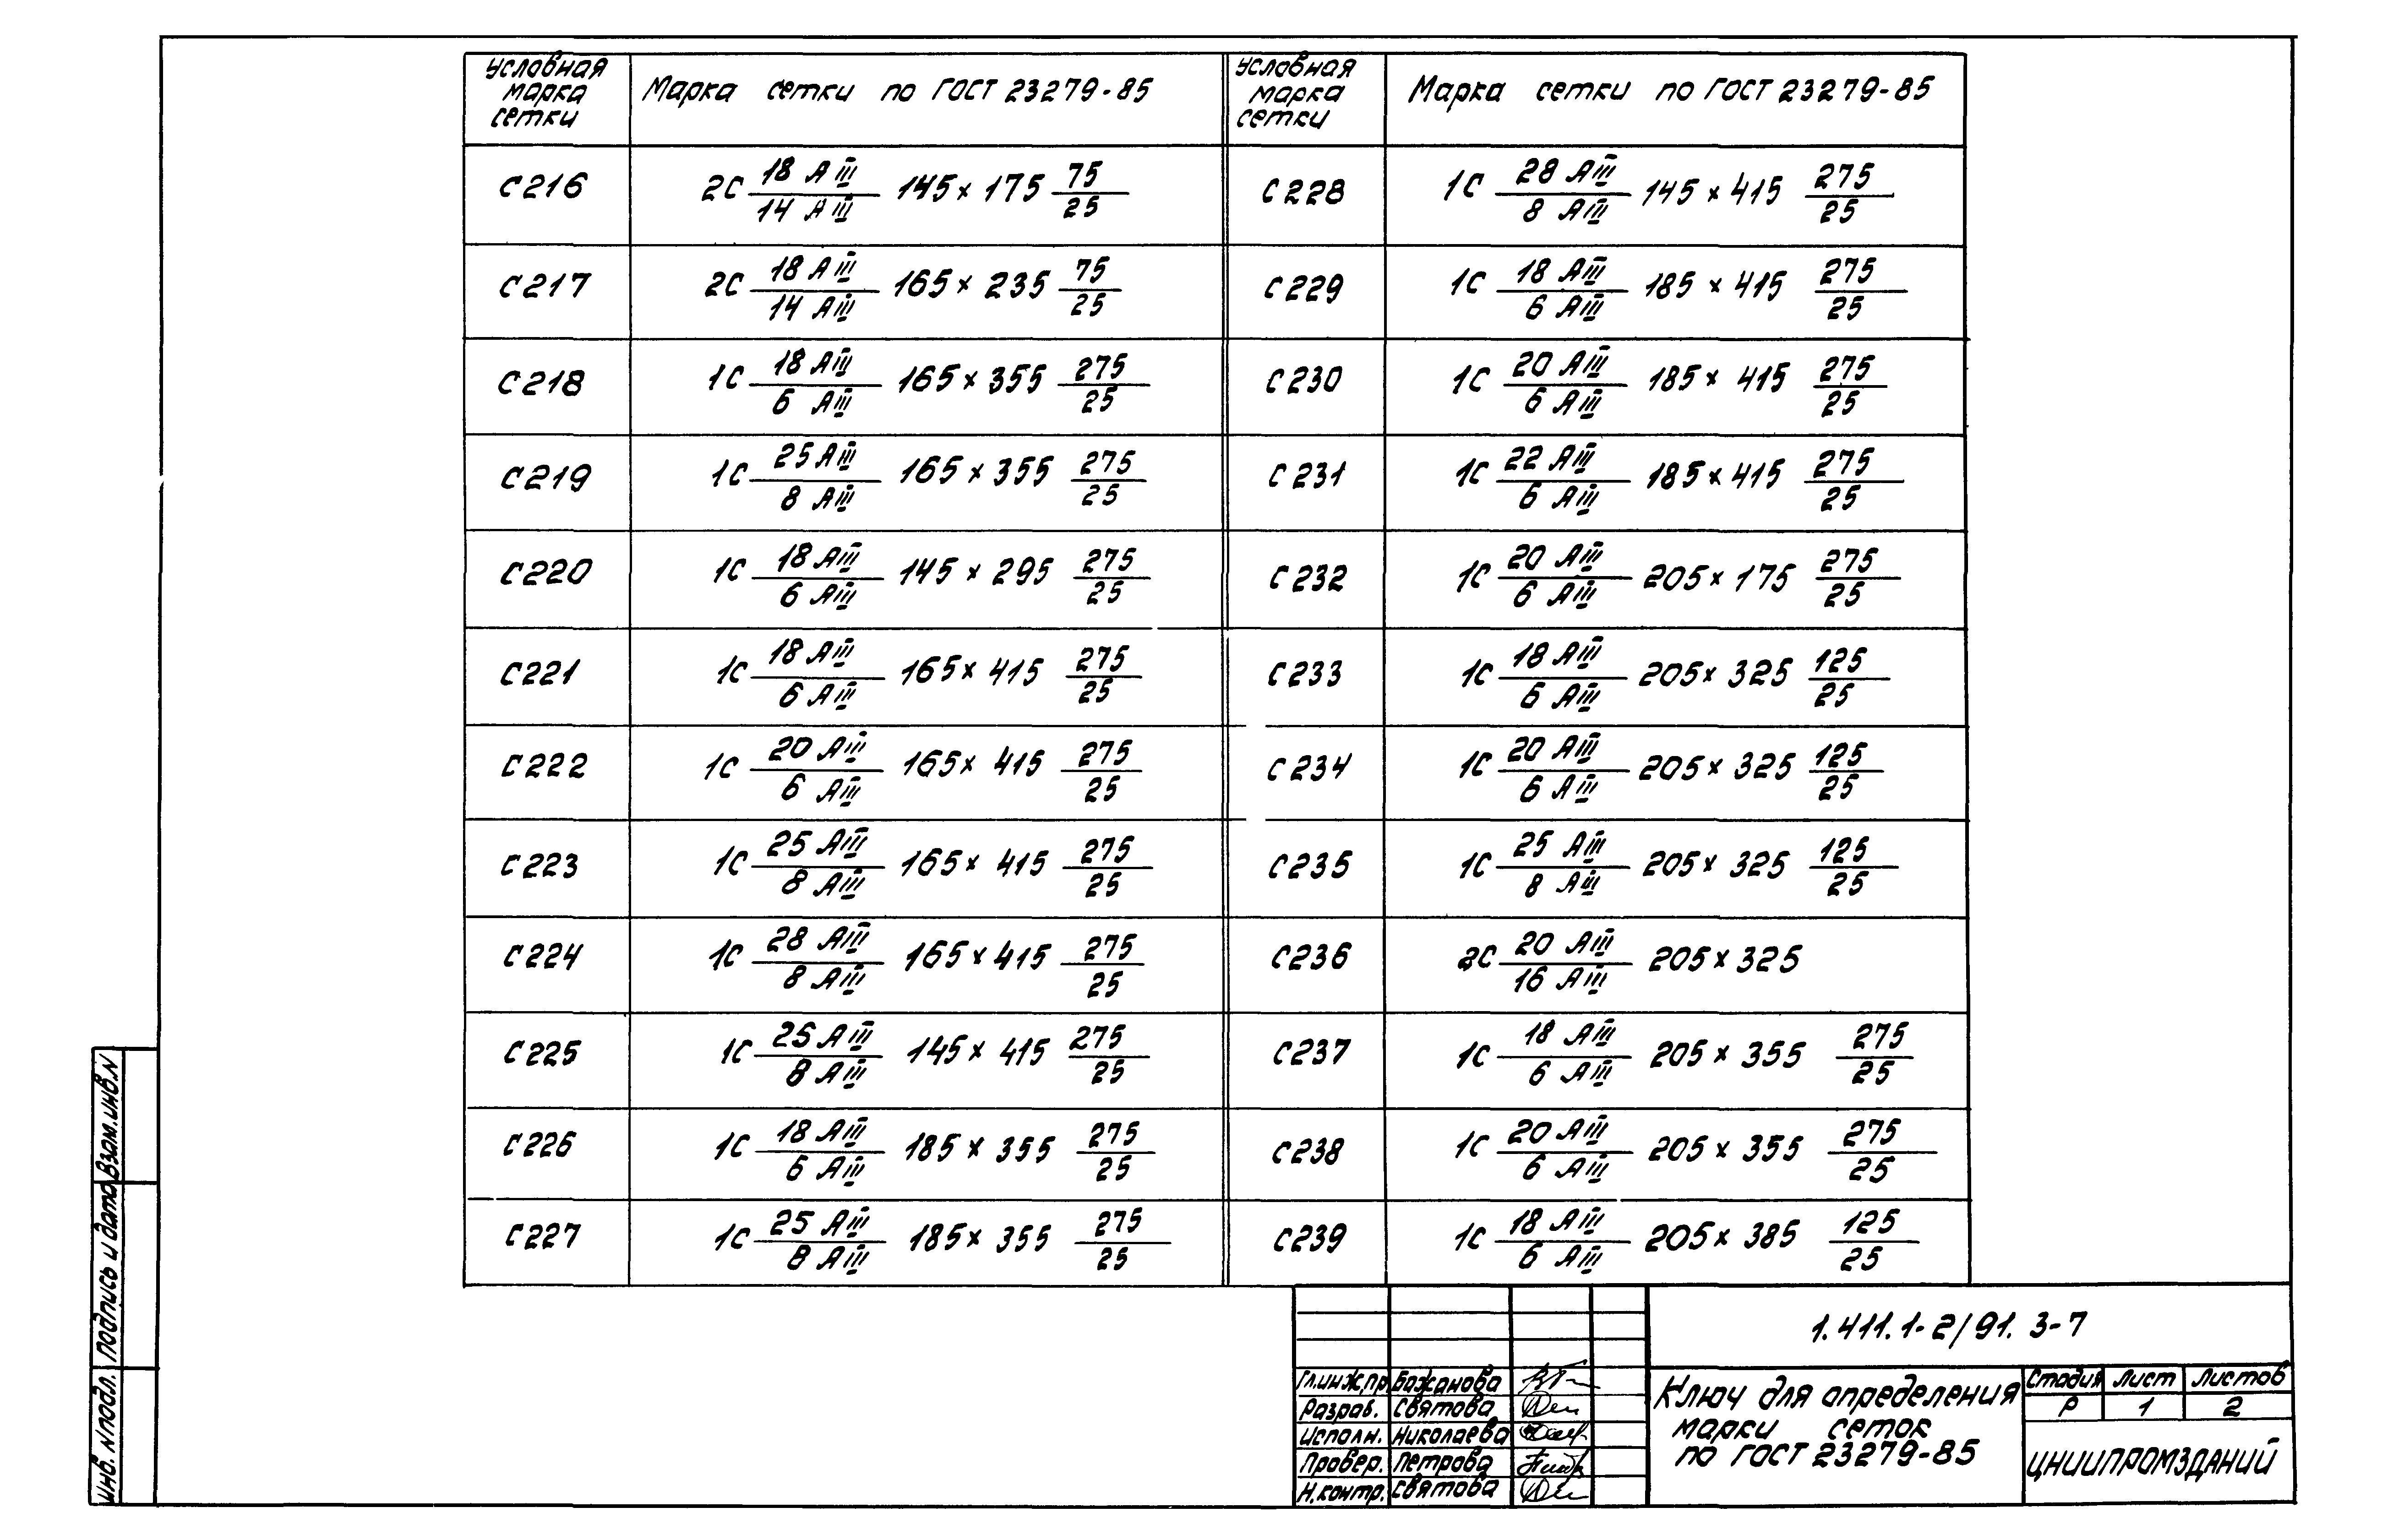 Условная марка сетки | Марка сетки по ГОСТ 23279-85 | Условная марка сетки | Марка сетки по ГОСТ 23279-85
С216 | 2С 18 АIII/14 АIII 145×175 75/25 | С228 | 1С 28 АIII/8 АIII 145×415 275/25
С217 | 2С 18 АIII/14 АIII 165×235 75/25 | С229 | 1С 18 АIII/6 АIII 185×415 275/25
С218 | 1С 18 АIII/6 АIII 165×355 275/25 | С230 | 1С 20 АIII/6 АIII 185×415 275/25
С219 | 1С 25 АIII/8 АIII 165×355 275/25 | С231 | 1С 22 АIII/6 АIII 185×415 275/25
С220 | 1С 18 АIII/6 АIII 145×295 275/25 | С232 | 1С 20 АIII/6 АIII 205×175 275/25
С221 | 1С 18 АIII/6 АIII 165×415 275/25 | С233 | 1С 18 АIII/6 АIII 205×325 125/25
С222 | 1С 20 АIII/6 АIII 165×415 275/25 | С234 | 1С 20 АIII/6 АIII 205×325 125/25
С223 | 1С 25 АIII/8 АIII 165×415 275/25 | С235 | 1С 25 АIII/8 АIII 205×325 125/25
С224 | 1С 28 АIII/8 АIII 165×415 275/25 | С236 | 2С 20 АIII/16 АIII 205×325
С225 | 1С 25 АIII/8 АIII 145×415 275/25 | С237 | 1С 18 АIII/6 АIII 205×355 275/25
С226 | 1С 18 АIII/6 АIII 185×355 275/25 | С238 | 1С 20 АIII/6 АIII 205×355 275/25
С227 | 1С 25 АIII/8 АIII 185×355 275/25 | С239 | 1С 18 АIII/6 АIII 205×385 125/25
1.411.1-2/91. 3-7
Гл.инж.пр. Бажанова
Разраб. Святова
Исполн. Николаева
Провер. Петрова
Н.контр. Святова
Ключ для определения
марки сеток
по ГОСТ 23279-85
Стадия Лист Листов
Р 1 2
ЦНИИПРОМЗДАНИЙ
Инв. N подл. Подпись и дата Взам.инв.N